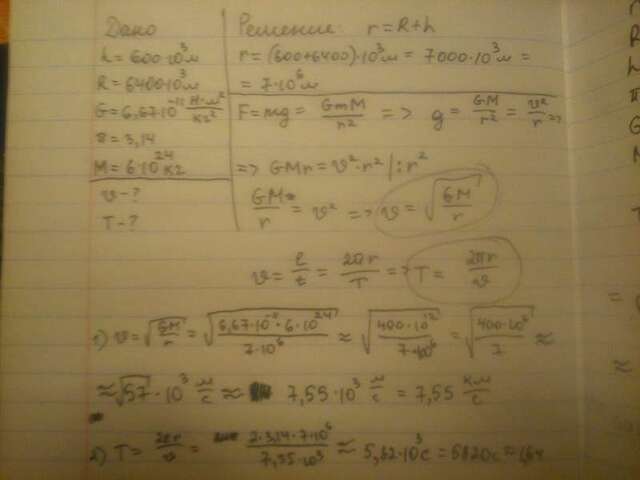 Дано
h = 600·10³м
R = 6400·10³м
G = 6,67·10⁻¹¹ Н·м²/кг²
π = 3,14
M = 6·10²⁴кг
υ - ?
T - ?
Решение: r = R + h
r = (600+6400)·10³м = 7000·10³м =
= 7·10⁶м
F = mg = GmM/r² => g = GM/r² = υ²/r =>
=> GMr = υ²·r² |: r²
GM/r = υ² => υ = √(GM/r)
υ = l/t = 2πr/T => T = 2πr/υ
1) υ = √(GM/r) = √(6,67·10⁻¹¹·6·10²⁴/7·10⁶) ≈ √(400·10¹²/7·10⁶) = √(400·10⁶/7) ≈
≈ √57·10³ м/с ≈ 7,55·10³ м/с = 7,55 км/с
2) T = 2πr/υ = 2·3,14·7·10⁶/7,55·10³ ≈ 5,82·10³с = 5820с ≈ 1,6ч